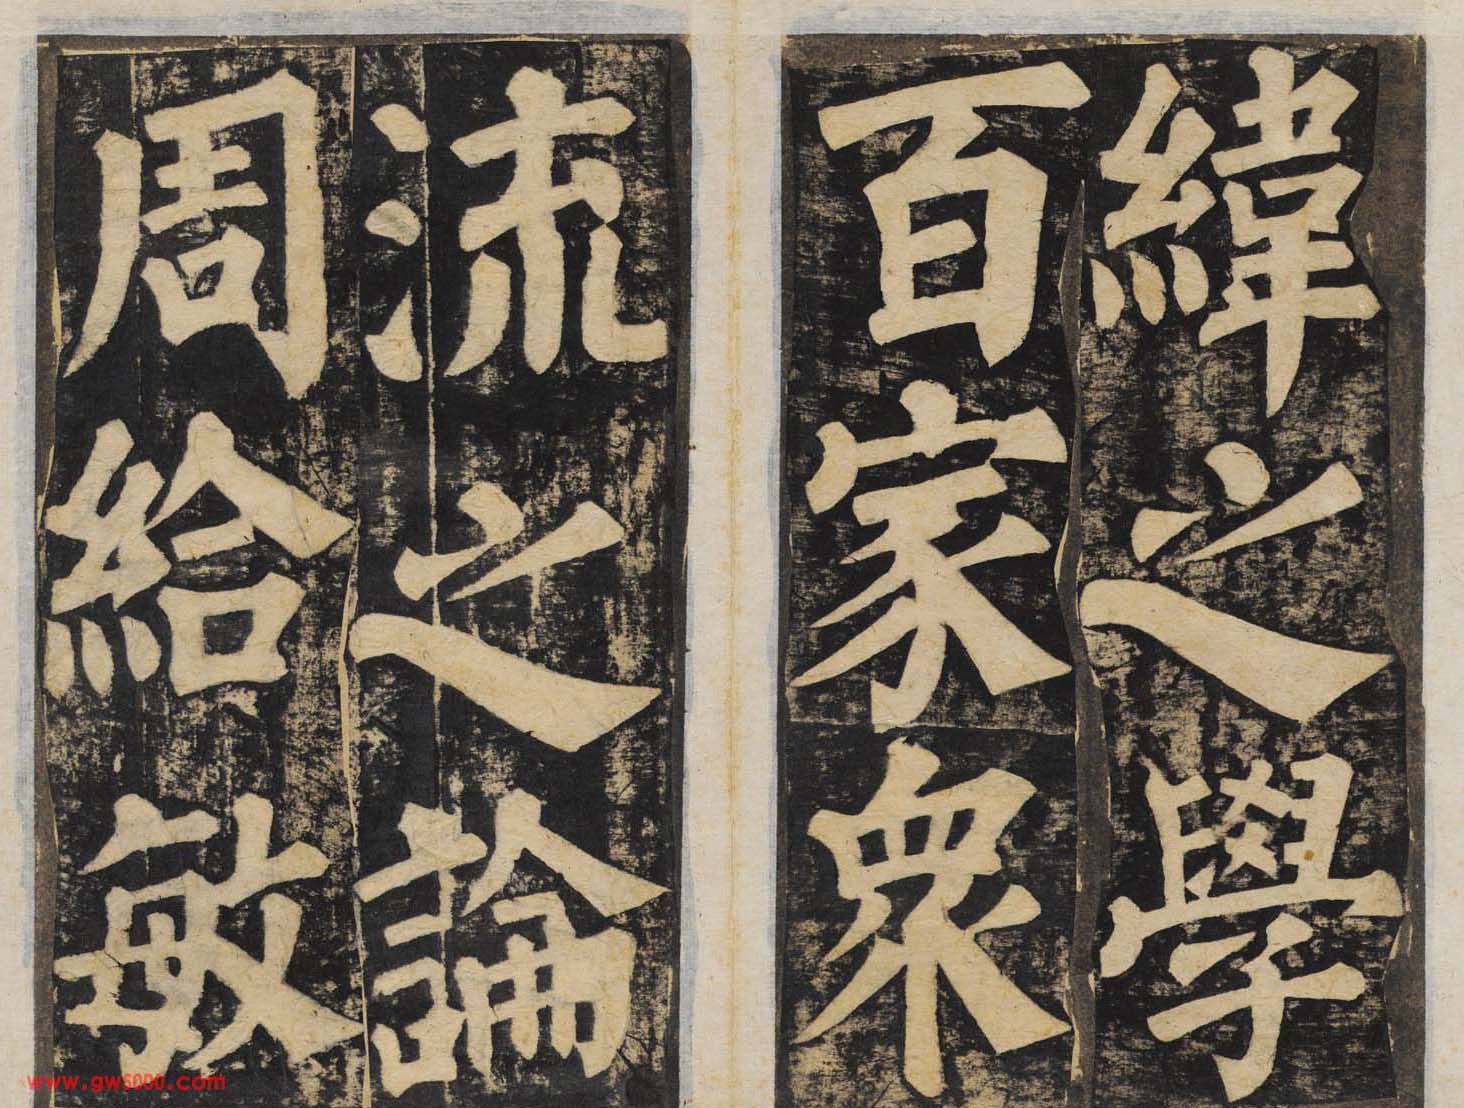 緯之學
百家衆
流之論
周給敏
www.gw5000.com